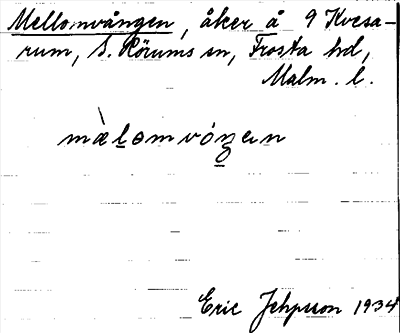 Mellomvången, åker å 9 Kvesa-
rum, S. Hörums sn, Frosta hd,
Malm. l.
mælomvóŋen
Eric Jehpson 1934